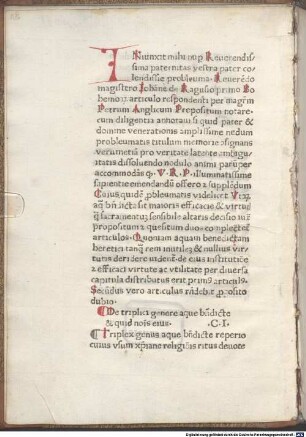 INiunxit mihi nup Reuerendis
sima paternitas vestra pater co
lendissie probleuma. Reuerēdo
magistro Johāne de Ragusio primo Bo
hemoꝝ articulo respondenti per magr̄m
Petrum Anglicum Propositum notare
cum diligentia annotaui si quid pater &
domine venerationis amplissime nedum
problematis titulum memorie ꝯsignans
veruetiā pro veritate latente ambigui
tatis dissoluendo nodulo animi parūper
accommodās q. V. R. P. illuminatissime
sapientie emendandū offero & supplēdum
Cuius quidē ꝓbleumatis videlicet Vtrū
aq̄ bn̄dicta sit maioris efficacie & virtutꝭ
q̄ sacramentuꝫ sensibile altaris decisio iux̄
propositum & quesitum duo complectet̄
articulos. Quoniam aquam benedictam
heretici tanq̄ rem inutilēꝫ & nullius vir
tutis deridere vident̄ de eius institutiōe
& efficaci virtute ac vtilitate per diuersa
capitula distributus erit primꝰ articulꝰ.
Secūdus vero articulus rn̄debit pꝓosito
dubio.
De triplici genere aque bn̄dicte
& quid nois eius .C. I.
Triplex genus aque bn̄dicte reperio
cuius vsum xp̄iane religiōis ritus deuote